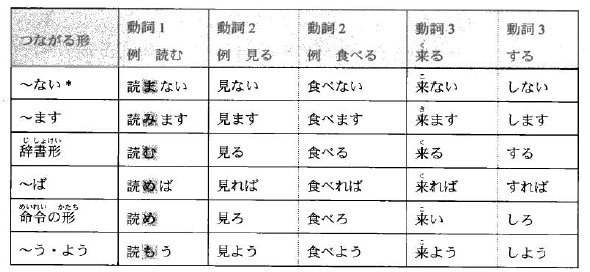 つながる形 動詞1 動詞2 動詞2 動詞3 動詞3
例 読む 例 見る 例 食べる 来る する
く
～ない* 読まない 見ない 食べない 来ない しない
こ
～ます 読みます 見ます 食べます 来ます します
き
辞書形 読む 見る 食べる 来る する
じしょけい く
～ば 読めば 見れば 食べれば 来れば すれば
く
命令の形 読め 見ろ 食べろ 来い しろ
めいれい かたち こ
～う・よう 読もう 見よう 食べよう 来よう しよう
こ